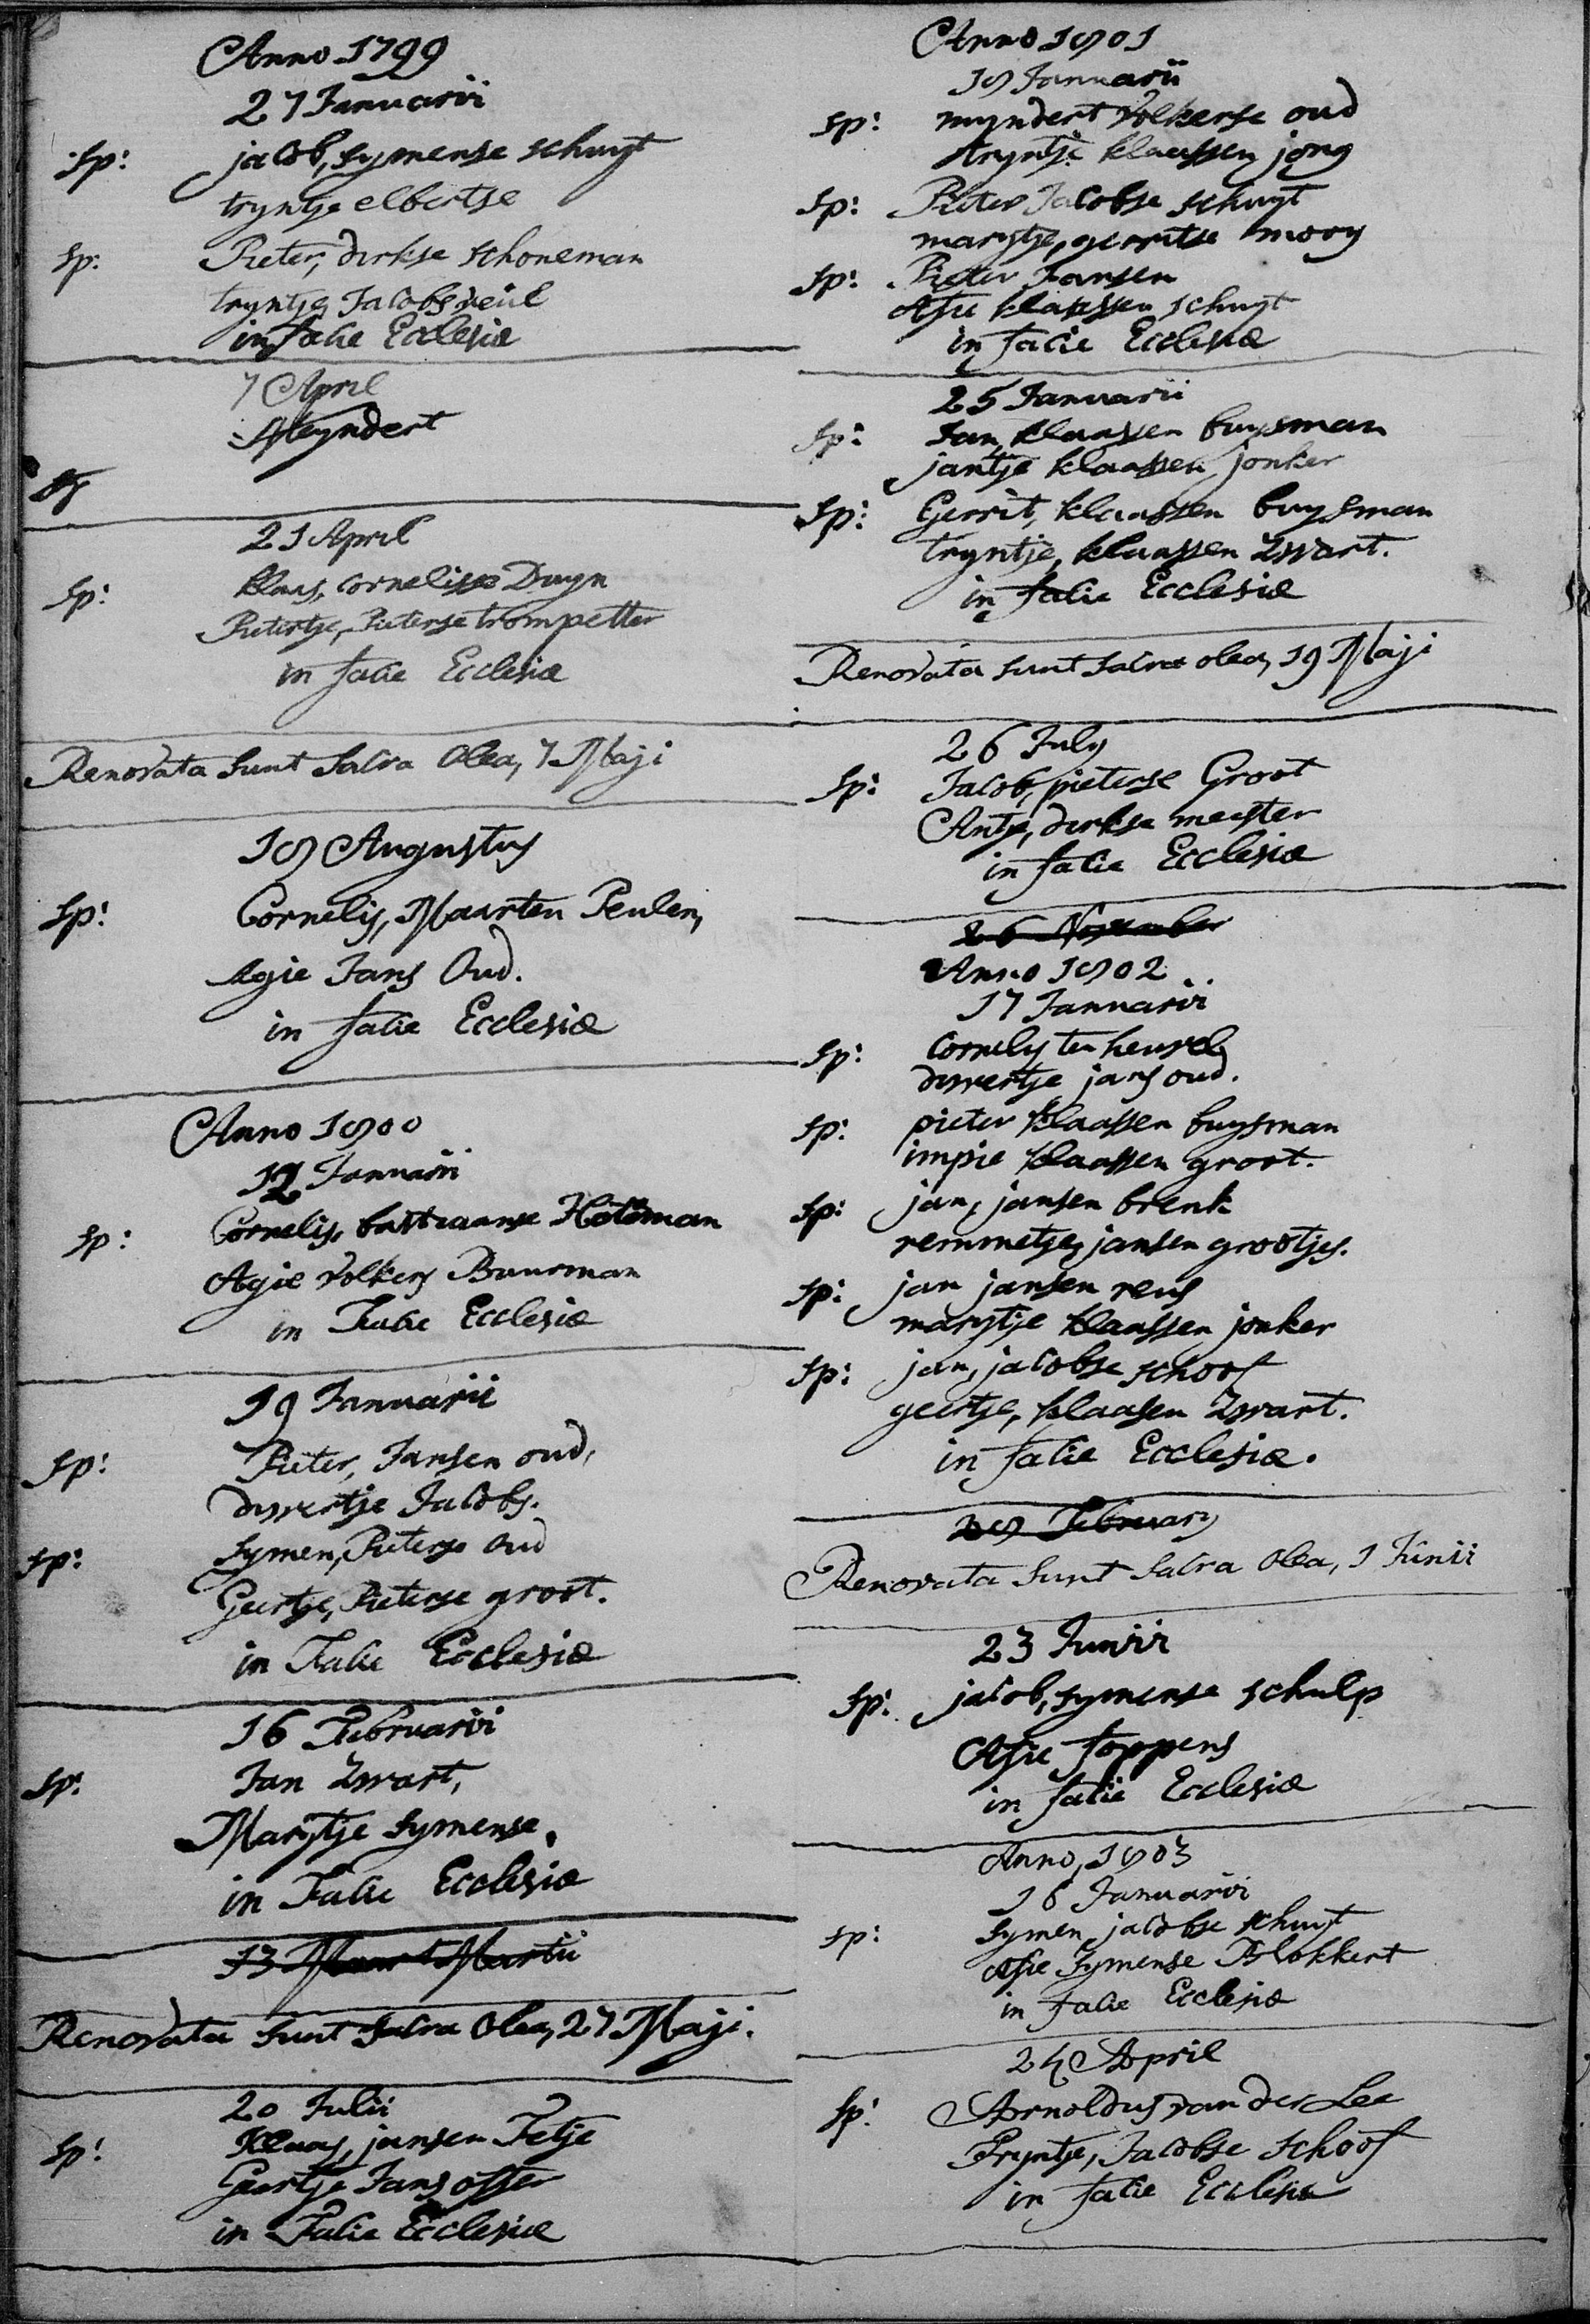 Anno 1799
27 Januarii
Sp: jacob, symense schuyt
tryntje elbertse
Sp: Pieter, dirkse schoneman
tryntje Jacobs veul
in facie Ecclesiæ
7 April
Meyndert
Sp
21 April
Sp: klaas, cornelisse Duyn
Pietertje, Pieterse trompetter
in facie Ecclesiæ
Renovata sunt sacra olea, 7 Maji
18 Augustus
Sp: Cornelis, Maarten Peulen,
Agie Jans Oud.
in facie Ecclesiæ
Anno 1800
12 Januarii
Sp: Cornelis, bastiaanse Hotöman
Agie Volkers Buurman
in Facie Ecclesiæ
19 Januarii
Sp: Pieter, Jansen oud,
duvertje Jacobs.
Sp: Symen, Pieterse oud
Geertje, Pieterse groot.
in Facie Ecclesiæ
16 Februarii
Sp: Jan Zwart,
Marytje symense.
in Facie Ecclesiæ
13 Maart Martii
Renovata sunt sacra olea, 27 Maji.
20 Julii
Sp: Klaas, jansen Tetje
Geertje Jans offer
in Facie Ecclesiæ
Anno 1801
18 Januarii
Sp: myndert Volkerse oud
tryntje klaassen jong
Sp: Pieter Jacobse schuyt
marytje, gerritse mooy
Sp: Pieter Jansen
Afie klaassen schuyt
in facie Ecclesiæ
25 Januarii
Sp: Jan, klaassen buysman
jantje klaassen jonker
Sp: Gerrit, klaassen buysman
tryntje, klaassen Zwart.
in facie Ecclesiæ
Renovata sunt sacra olea, 19 Maji
26 July
Sp: Jacob, pieterse Groot
Antje, dirkse meester
in facie Ecclesiæ
26 November
Anno 1802
17 Januarii
Sp: Cornelis ten heuvel
duvertje jans oud.
Sp: pieter klaassen buysman
impie klaassen groot.
Sp: jan, jansen brenk
remmetje, jansen grootjes.
Sp: jan jansen reus
marytje klaassen jonker
Sp: jan, jacobse schoof
geertje, klaasen Zwart.
in facie Ecclesiæ.
28 February
Renovata sunt sacra olea, 1 Junii
23 Junii
Sp: jacob, symense schulp
Afie foppens
in facie Ecclesiæ
Anno, 1803
16 Januarii
Sp: Symen jacobse schuyt
Afie Symense Blokkert
in facie Ecclesiæ
24 April
Sp: Arnoldus van der Lee
Tryntje, Jacobse schoof
in facie Ecclesiæ